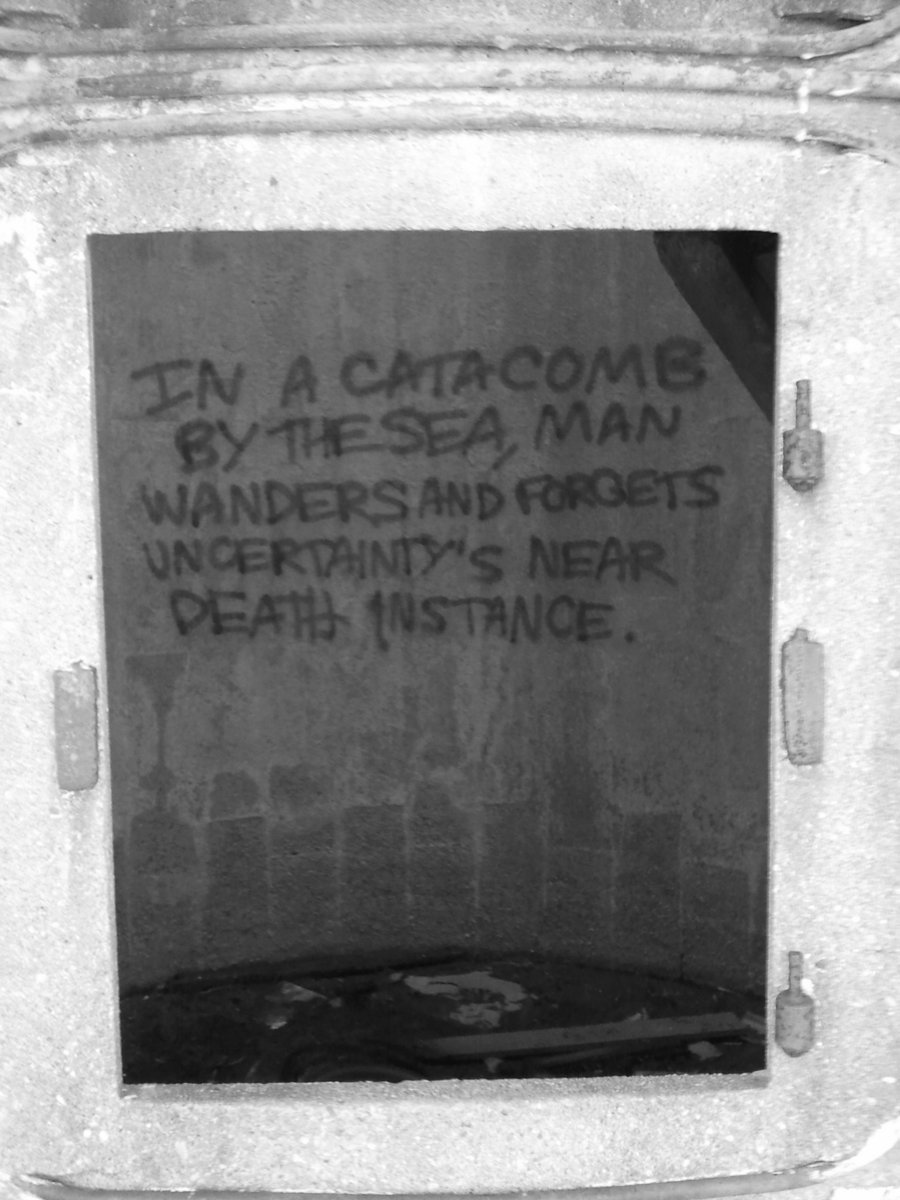 IN A CATACOMB
BY THE SEA, MAN
WANDERS AND FORGETS
UNCERTAINTY"S NEAR
DEATH INSTANCE.